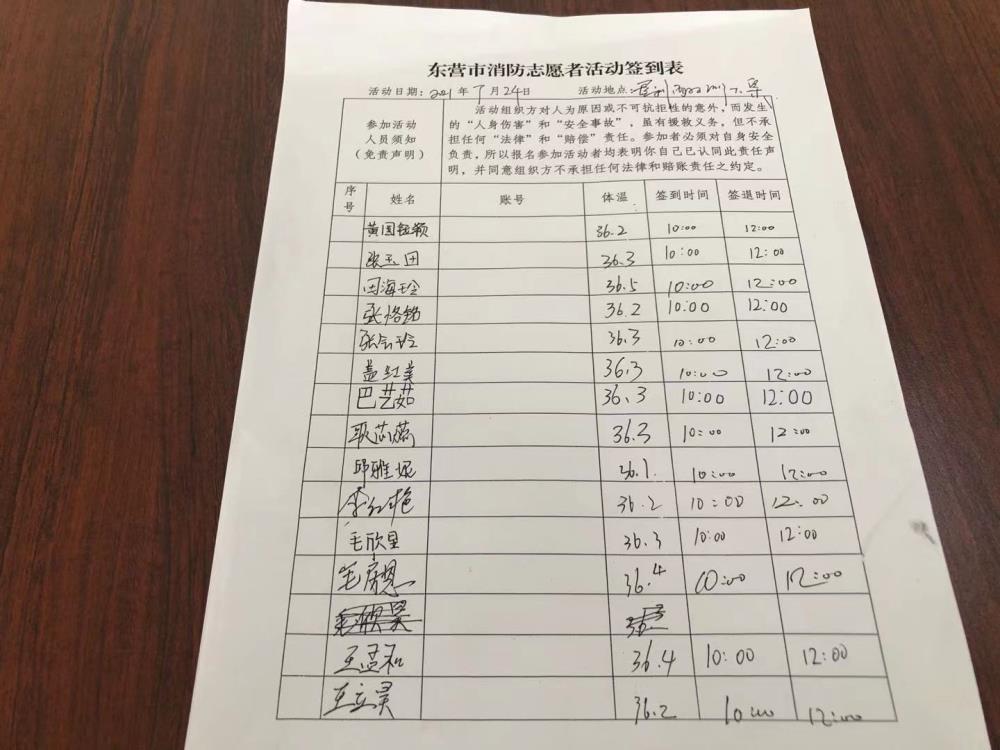 东营市消防志愿者活动签到表
活动日期:2021年7月24日 活动地点:
参加活动
人员须知
(免责声明)
活动组织方对人为原因或不可抗拒性的意外,而发生
的“人身伤害”和“安全事故”,虽有援救义务,但不承
担任何“法律”和“赔偿”责任。参加者必须对自身安全
负责,所以报名参加活动者均表明你自己已认同此责任声
明,并同意组织方不承担任何法律和赔账责任之约定。
序号 姓名 账号 体温 签到时间 签退时间
黄国钰颖 36.2 10:00 12:00
张玉田 36.3 10:00 12:00
田海玲 36.5 10:00 12:00
张恪铭 36.2 10:00 12:00
张会玲 36.3 10:00 12:00
盖红美 36.3 10:00 12:00
巴艺茹 36.3 10:00 12:00
耿 36.3 10:00 12:00
邱雅妮 36.1 10:00 12:00
李红艳 36.2 10:00 12:00
毛欣里 36.3 10:00 12:00
毛 36.4 10:00 12:00
王孟和 36.4 10:00 12:00
王立昊 36.2 10:00 12:00